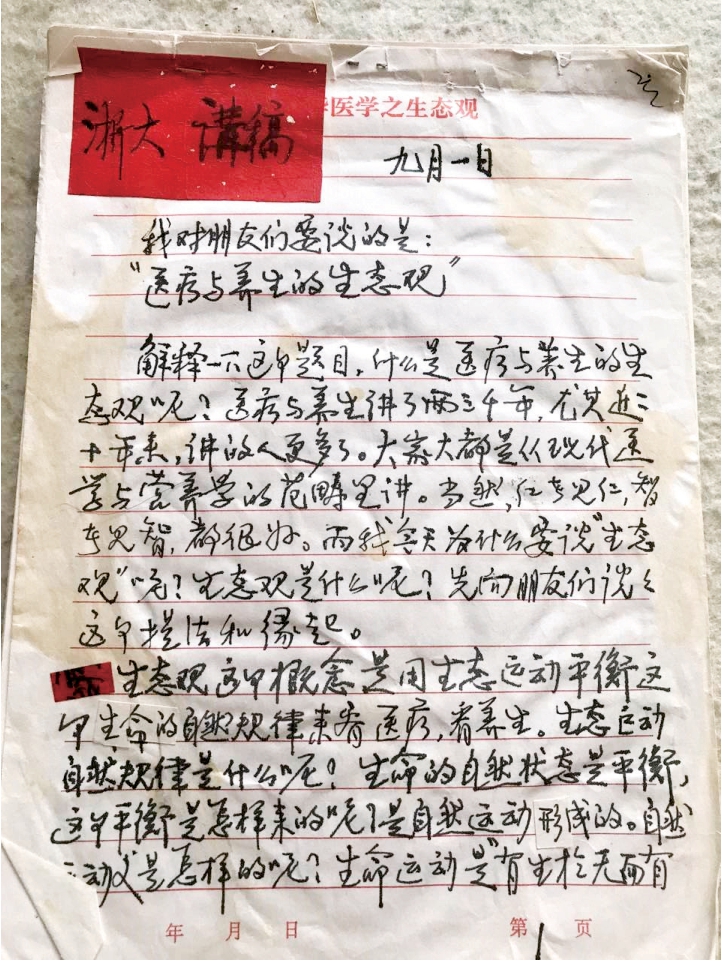 浙大 讲稿
医学之生态观
九月一日
我对朋友们要谈的是：
“医疗与养生的生态观”
解释一下这个题目，什么是医疗与养生的生
态观呢？医疗与养生讲了两三千年，尤其近二
十年来，讲的人更多了。大家大都是从现代医
学与营养学的范畴里讲。当然，仁者见仁，智
者见智，都很好。而我今天为什么要谈“生态
观”呢？生态观是什么呢？先向朋友们谈谈
这个提法和缘起。
生态观这个概念是用生态运动平衡这
个生命的自然规律来看医疗，看养生。生态运动
自然规律是什么呢？生命的自然状态是平衡，
这个平衡是怎样来的呢？是自然运动形成的。自然
运动又是怎样的呢？生命运动是“有生于无而有
年 月 日 第 1 页